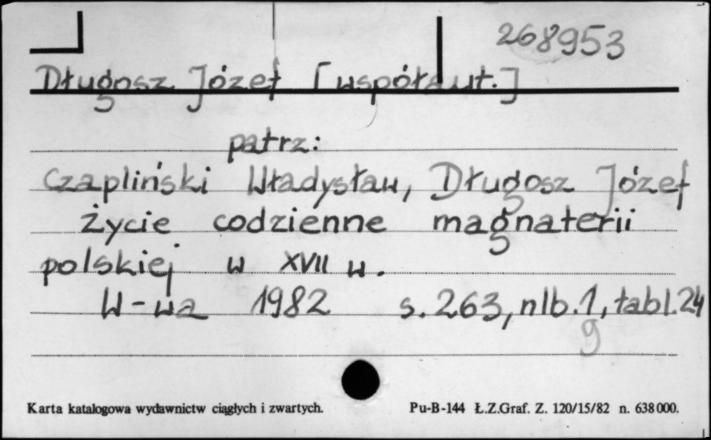 268953
Długosz Józef [współaut.]
patrz:
Czapliński Władysław, Długosz Józef
Życie codzienne magnaterii
polskiej w XVII w.
W-wa 1982 s. 263, nlb. 1, tabl. 24
9
Karta katalogowa wydawnictw ciągłych i zwartych. Pu-B-144 Ł.Z.Graf. Z. 120/15/82 n. 638 000.